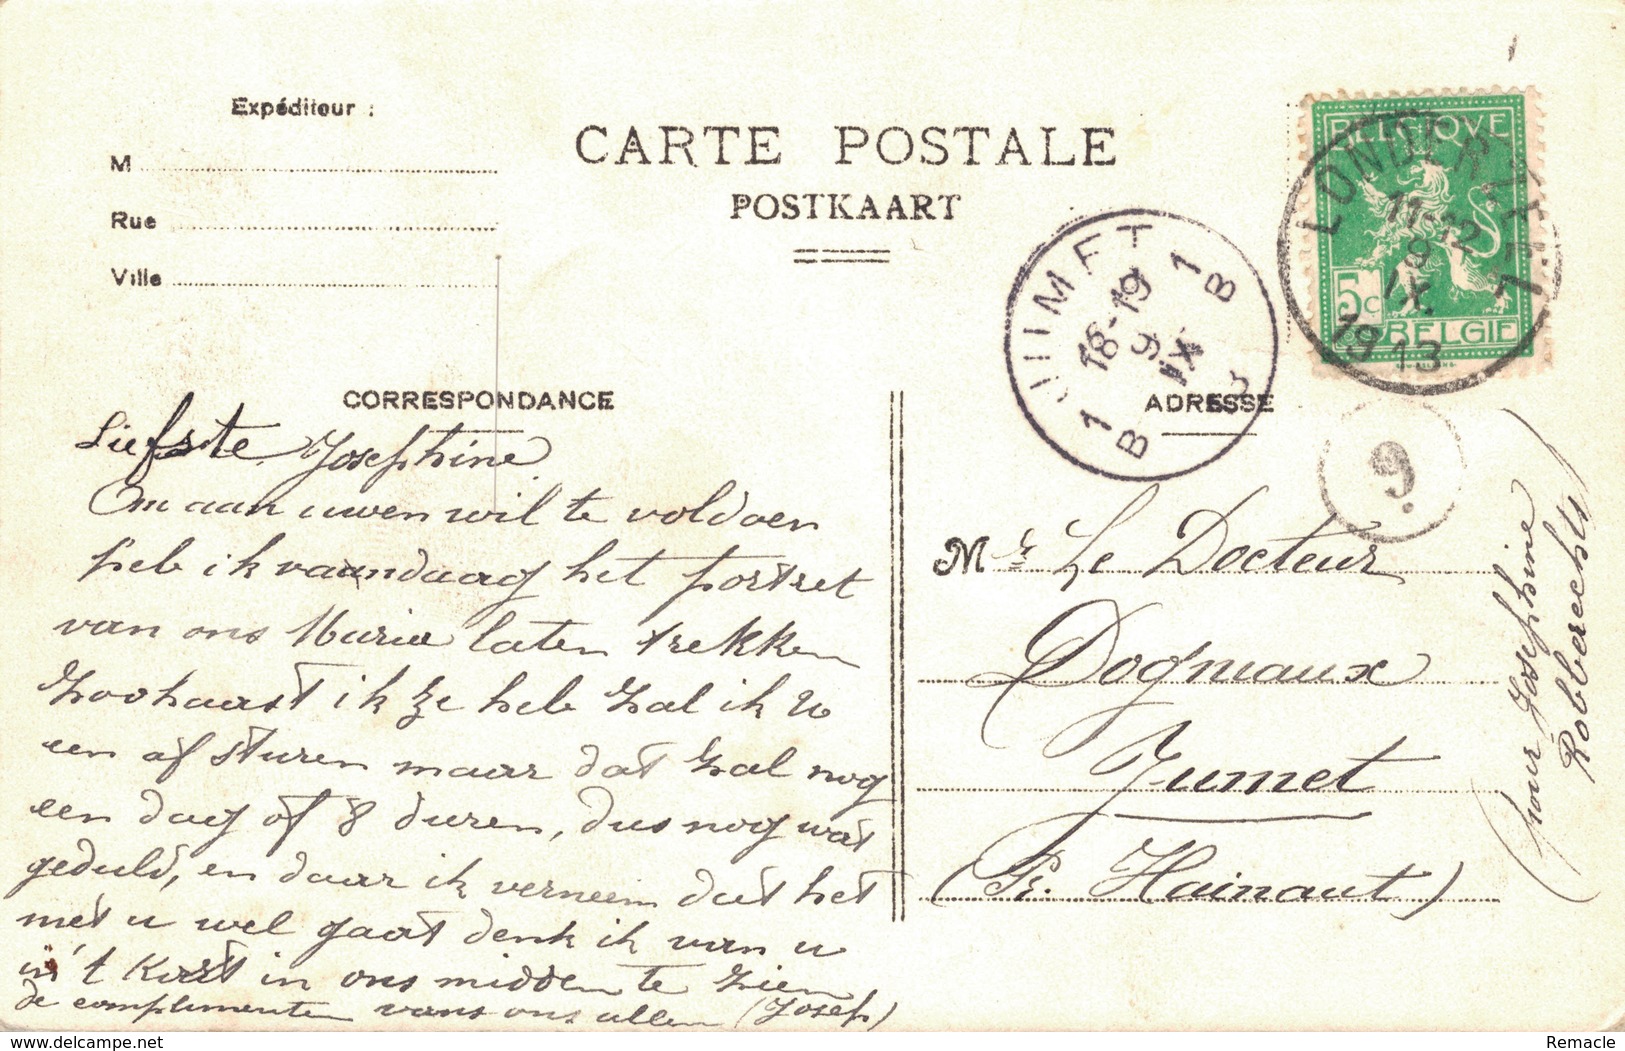 Expéditeur :
M
Rue
Ville
CARTE POSTALE
POSTKAART
BELGIQUE
5c
BELGIE
LONDERZEEL
11-12
9
IX
1913
JUMET 1
18-19
9
IX
1 B
B
CORRESPONDANCE
Liefste Josephine
Om aan uwen wil te voldoen
heb ik vandaag het portret
van ons Maria laten trekken
Zoohaast ik ze heb zal ik u
een af sturen maar dat zal nog
een dag of 8 duren, dus nog wat
geduld, en daar ik verneem dat het
met u wel gaat denk ik van u
in 't kort in ons midden te zien
de complimenten vans ons allen (Josef)
ADRESSE
9.
Mr Le Docteur
Dogniaux
Jumet
(Pr. Hainaut)
(pour Josephine
Robberechts)
delcampe.net
Remacle